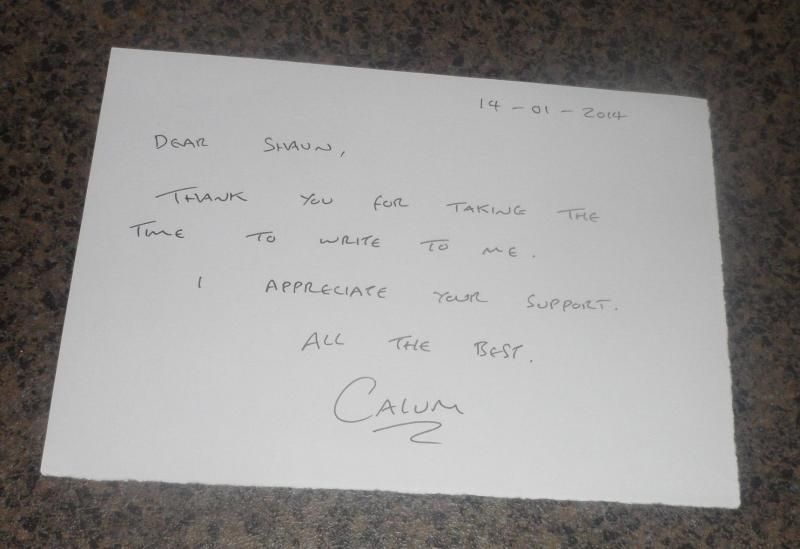 14 - 01 - 2014
DEAR SHAUN,
THANK YOU FOR TAKING THE
TIME TO WRITE TO ME.
I APPRECIATE YOUR SUPPORT.
ALL THE BEST.
CALUM